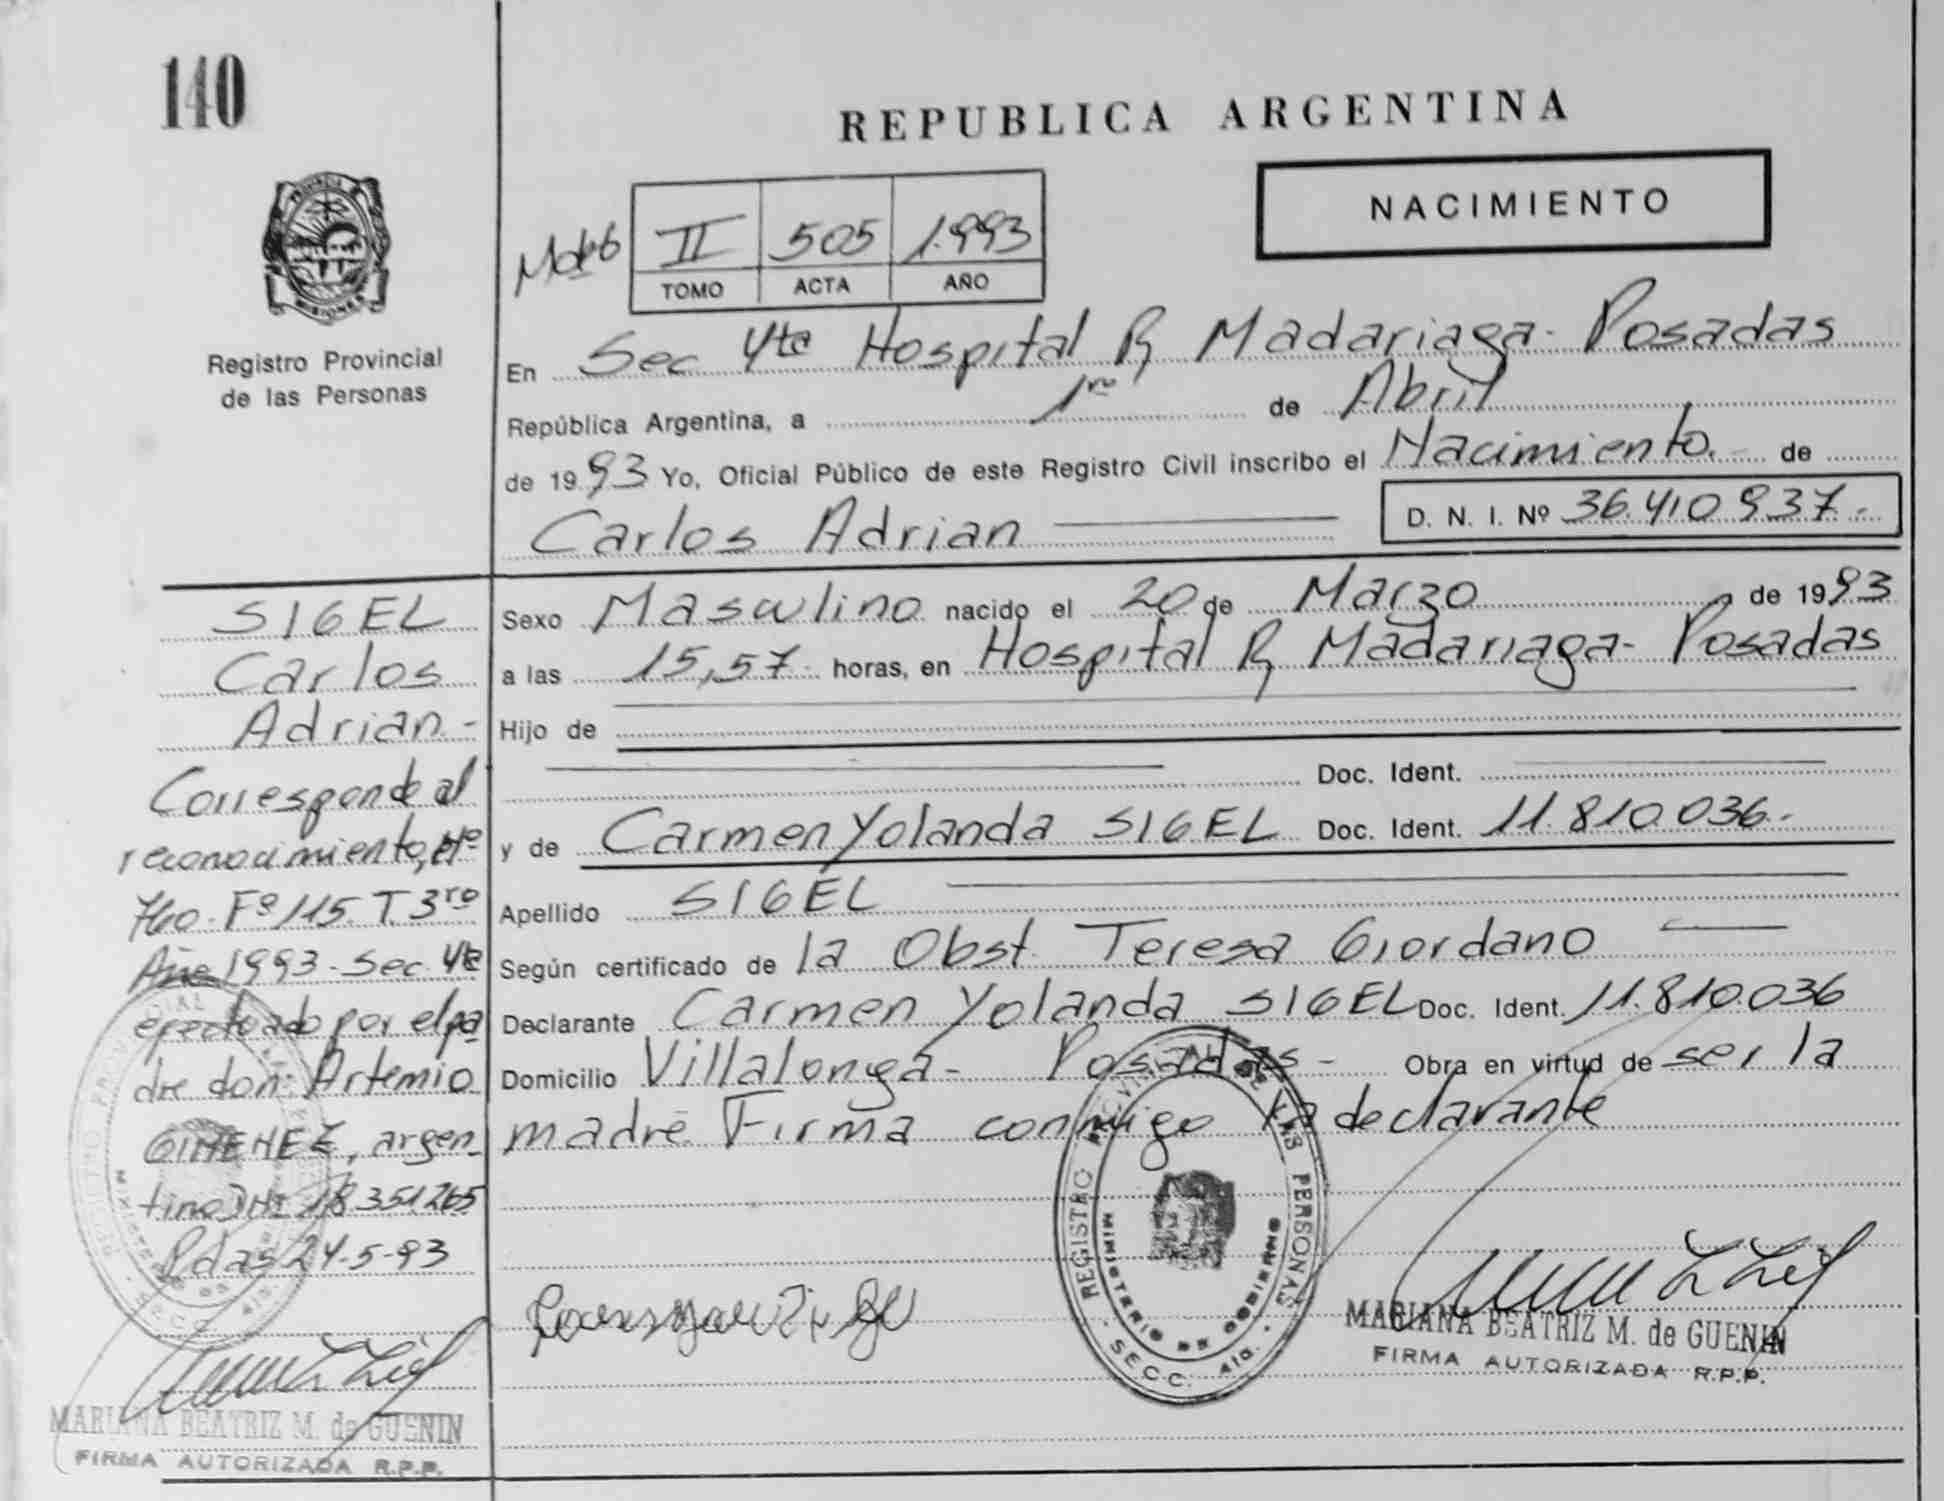 140
REPUBLICA ARGENTINA
NACIMIENTO
II 505 1.993
TOMO ACTA AÑO
PROVINCIA DE
MISIONES
Registro Provincial
de las Personas
En Sec 4ta Hospital R Madariaga - Posadas
República Argentina, a 1ro de Abril
de 1993 Yo, Oficial Público de este Registro Civil inscribo el Nacimiento.- de
Carlos Adrian D. N. I. Nº 36.410.937.-
Sexo Masculino nacido el 20 de Marzo de 1993
a las 15,57 horas, en Hospital R Madariaga - Posadas
Hijo de
Doc. Ident.
y de Carmen Yolanda SIGEL Doc. Ident. 11.810.036.-
Apellido SIGEL
Según certificado de la Obst. Teresa Giordano
Declarante Carmen Yolanda SIGEL Doc. Ident. 11.810.036
Domicilio Villalonga - Posadas - Obra en virtud de ser la
madre. Firma conmigo la declarante
REGISTRO PROVINCIAL DE LAS PERSONAS
MINISTERIO DE GOBIERNO
SECC. 4ta.
MARIANA BEATRIZ M. de GUENIN
FIRMA AUTORIZADA R.P.P.
SIGEL
Carlos
Adrian.-
Corresponde al
reconocimiento, Nº
760. Fº 115. T. 3ro
Año 1993 - Sec. 4ta
efectuado por el pa
dre don: Artemio
GIMENEZ, argen-
tino DNI 18351265
Pdas 24-5-93
MARIANA BEATRIZ M. de GUENIN
FIRMA AUTORIZADA R.P.P.